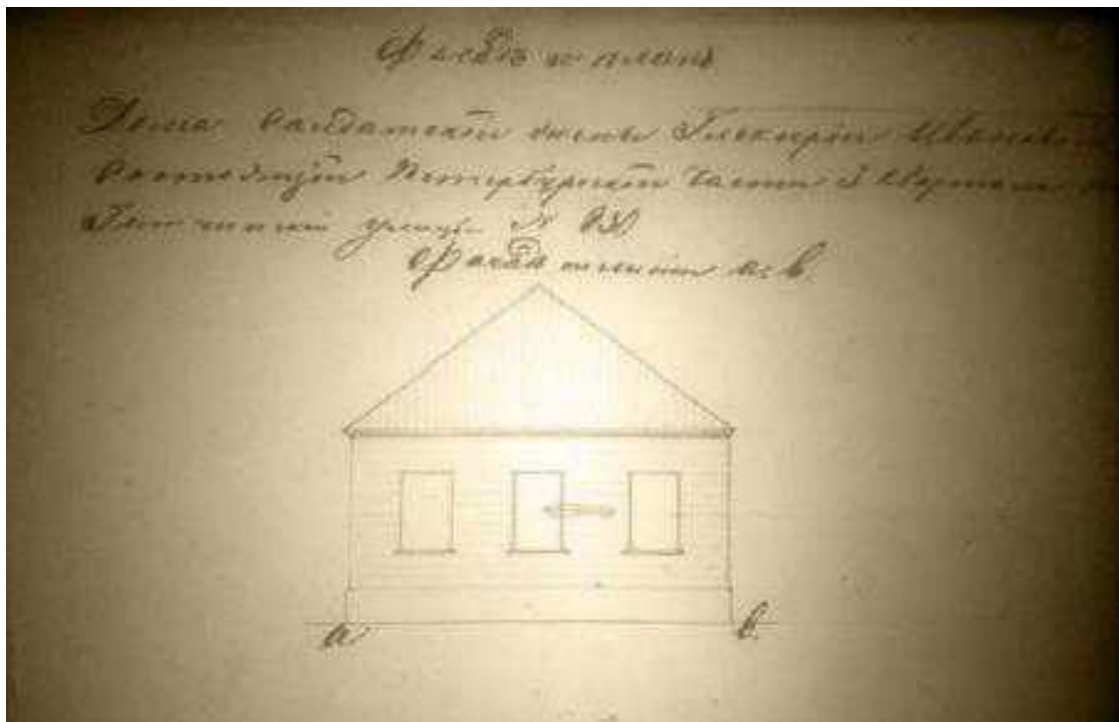 Фасадъ и планъ
Дома Салдатской жены Гликеріи Ивановой
состоящій Петербургской части 3 квартала
улицы №
Фасадъ по линіи а: в.
а в.